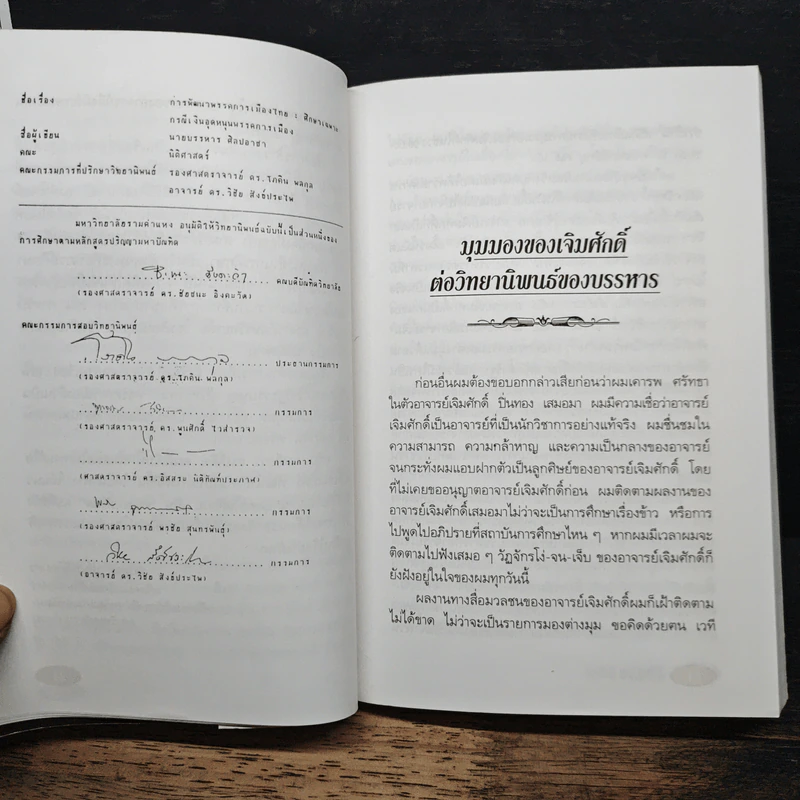 ชื่อเรื่อง การพัฒนาพรรคการเมืองไทย : ศึกษาเฉพาะ
กรณีเงินอุดหนุนพรรคการเมือง
ชื่อผู้เขียน นายบรรหาร ศิลปอาชา
คณะ นิติศาสตร์
คณะกรรมการที่ปรึกษาวิทยานิพนธ์ รองศาสตราจารย์ ดร.โภคิน พลกุล
อาจารย์ ดร.วิชัย สังข์ประไพ
มหาวิทยาลัยรามคำแหง อนุมัติให้วิทยานิพนธ์ฉบับนี้เป็นส่วนหนึ่งของ
การศึกษาตามหลักสูตรปริญญามหาบัณฑิต
คณบดีบัณฑิตวิทยาลัย
(รองศาสตราจารย์ ดร.ชัยชนะ อิงคะวัต)
คณะกรรมการสอบวิทยานิพนธ์
ประธานกรรมการ
(รองศาสตราจารย์ ดร.โภคิน พลกุล)
กรรมการ
(รองศาสตราจารย์ ดร.พูนศักดิ์ ไวสำรวจ)
กรรมการ
(ศาสตราจารย์ ดร.อิสสระ นิติทัณฑ์ประภาศ)
กรรมการ
(รองศาสตราจารย์ พรชัย สุนทรพันธุ์)
กรรมการ
(อาจารย์ ดร.วิชัย สังข์ประไพ)
มุมมองของเจิมศักดิ์
ต่อวิทยานิพนธ์ของบรรหาร
ก่อนอื่นผมต้องขอบอกกล่าวเสียก่อนว่าผมเคารพ ศรัทธา
ในตัวอาจารย์เจิมศักดิ์ ปิ่นทอง เสมอมา ผมมีความเชื่อว่าอาจารย์
เจิมศักดิ์เป็นอาจารย์ที่เป็นนักวิชาการอย่างแท้จริง ผมชื่นชมใน
ความสามารถ ความกล้าหาญ และความเป็นกลางของอาจารย์
จนกระทั่งผมแอบฝากตัวเป็นลูกศิษย์ของอาจารย์เจิมศักดิ์ โดย
ที่ไม่เคยขออนุญาตอาจารย์เจิมศักดิ์ก่อน ผมติดตามผลงานของ
อาจารย์เจิมศักดิ์เสมอมาไม่ว่าจะเป็นการศึกษาเรื่องข้าว หรือการ
ไปพูดไปอภิปรายที่สถาบันการศึกษาไหน ๆ หากผมมีเวลาผมจะ
ติดตามไปฟังเสมอ ๆ วัฏจักรโง่-จน-เจ็บ ของอาจารย์เจิมศักดิ์ก็
ยังฝังอยู่ในใจของผมทุกวันนี้
ผลงานทางสื่อมวลชนของอาจารย์เจิมศักดิ์ผมก็เฝ้าติดตาม
ไม่ได้ขาด ไม่ว่าจะเป็นรายการมองต่างมุม ขอคิดด้วยคน เวที